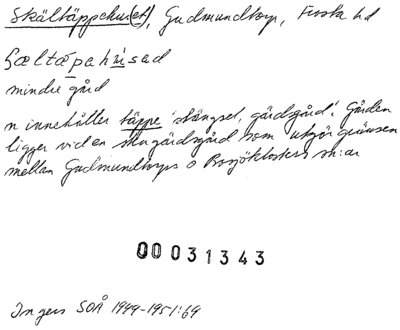 Skältäppehu(et), Gudmundtorp, Frosta hd
Sæltäpahusad
mindre gård
n innehåller täppe 'stängsel, gärdsgård'. Gården
ligger vid en skogärdsgård som utgör gränsen
mellan Gudmundtorps o Bosjöklosters sn:ar
00031343
Ingers SOÅ 1949-1951:69